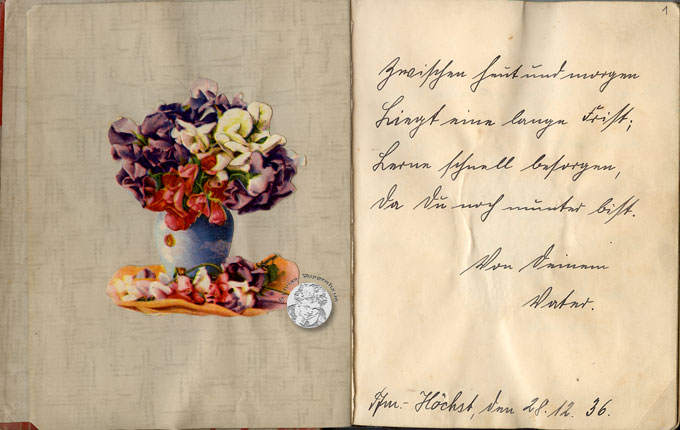 1
Zwischen heut und morgen
Liegt eine lange Frist;
Lerne schnell besorgen,
Da Du noch munter bist.
Von Deinem
Vater.
Ffm.- Höchst, den 28.12.36.